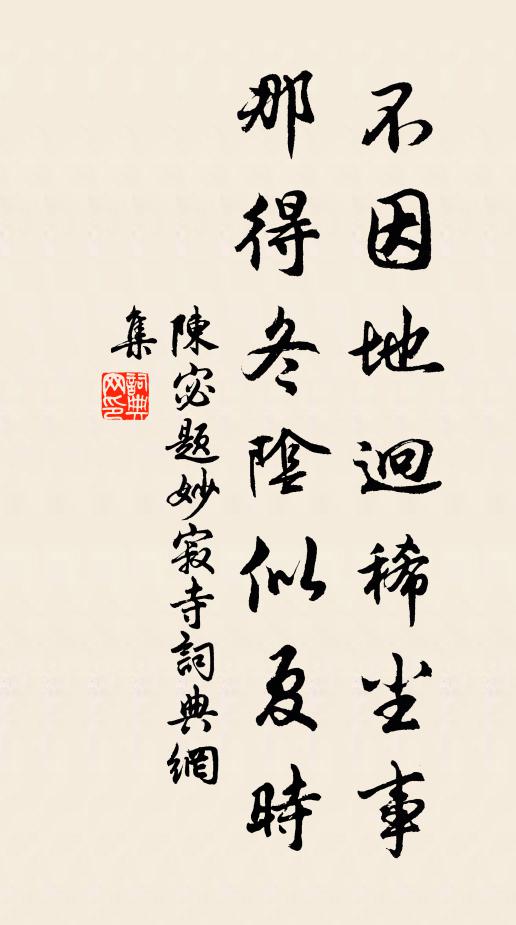 不因地迥稀尘事
那得冬陰似夏時
陳宓題妙寂寺詞典網
集
詞典
网印